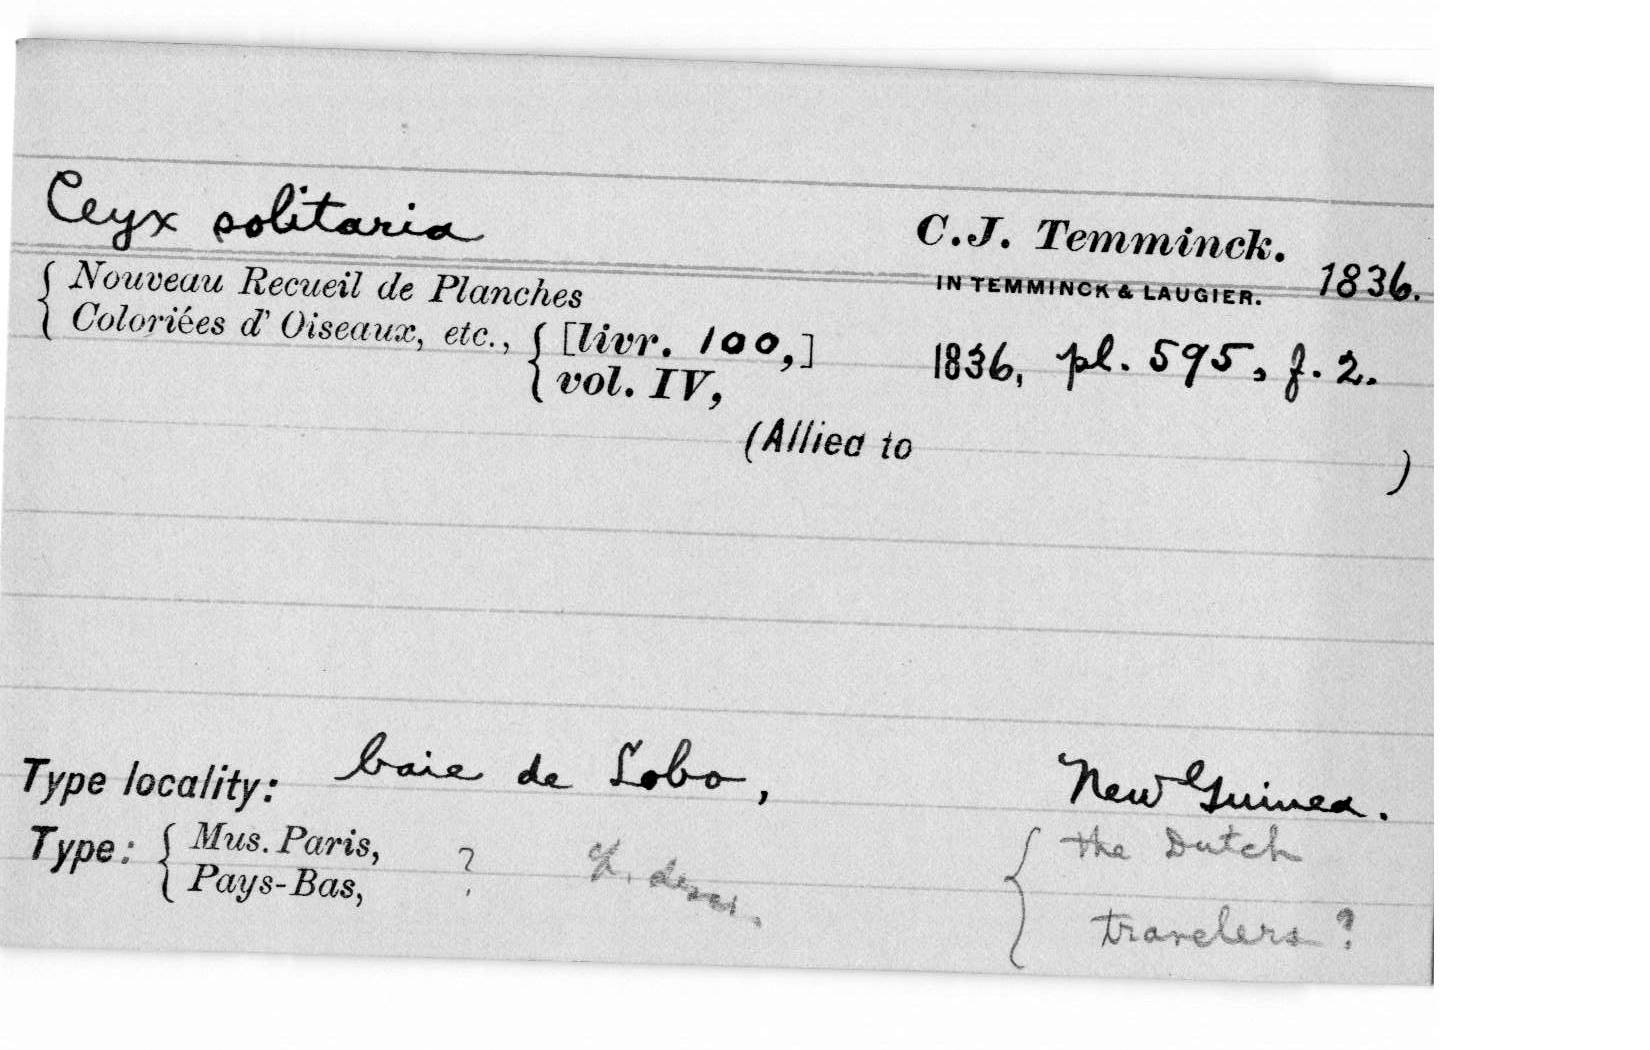 Ceyx solitaria C.J. Temminck.
IN TEMMINCK & LAUGIER. 1836.
{ Nouveau Recueil de Planches
Coloriées d' Oiseaux, etc., { [livr. 100,] 1836, pl. 595, f. 2.
vol. IV,
(Allied to )
Type locality: baie de Lobo, New Guinea.
Type: { Mus. Paris, ? { the Dutch
Pays-Bas, travelers ?